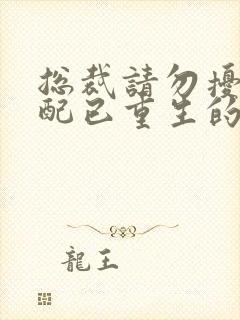 總裁請勿擾
配已重生的
龍王